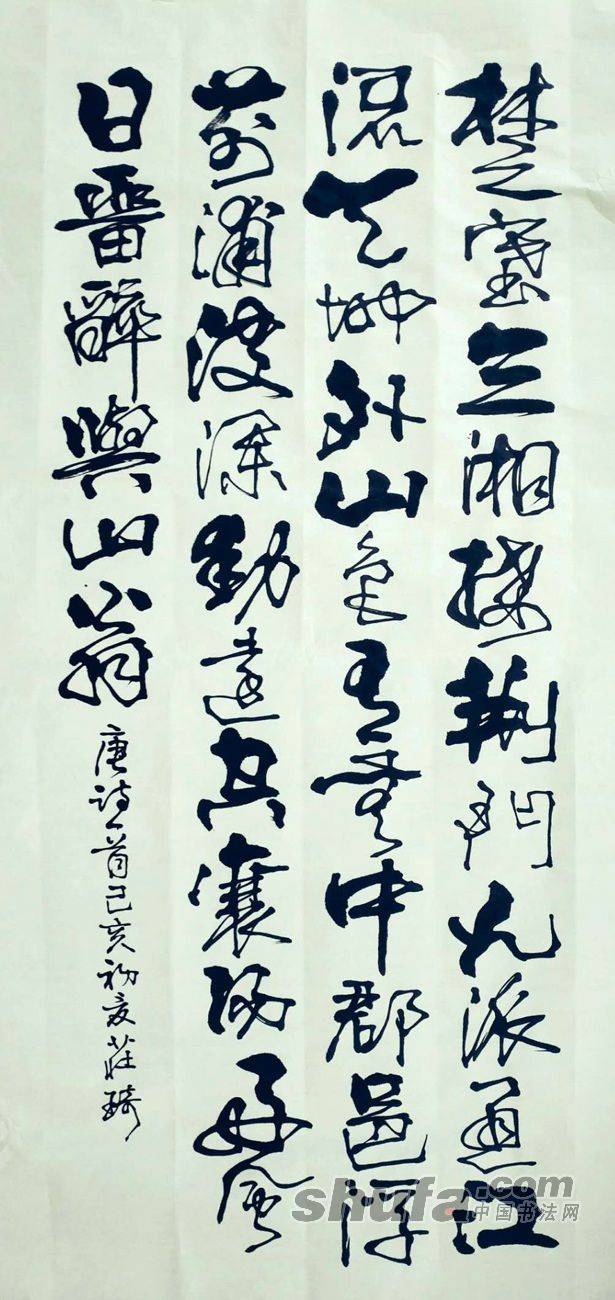 楚塞三湘接荊門九派通江
流天地外山色有無中郡邑浮
前浦波瀾動遠空襄陽好風
日留醉與山翁
唐詩一首己亥初夏莊琦
shufa.com
中国书法网